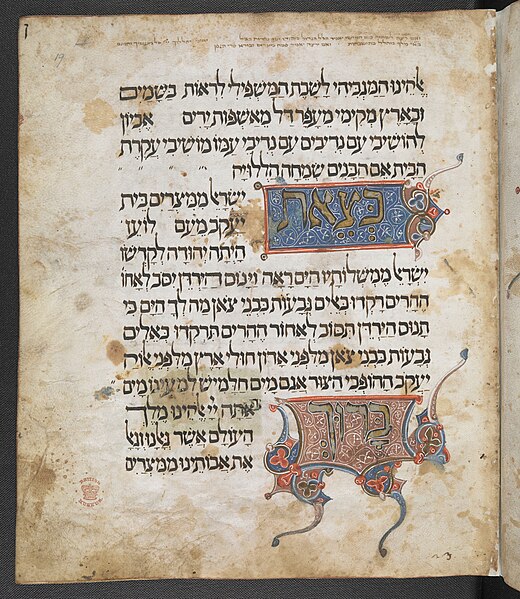 אלהינו המגביהי לשבת המשפילי לראות בשמים
ובארץ מקימי מעפר דל מאשפות ירים אביון
להושיבי עם נדיבים עם נדיבי עמו מושיבי עקרת
הבית אם הבנים שמחה הללויה
בצאת
ישראל ממצרים בית
יעקב מעם לועז
היתה יהודה לקדשו
ישראל ממשלותיו הים ראה וינוס הירדן יסב לאחו
ההרים רקדו כאילים גבעות כבני צאן מה לך הים כי
תנוס הירדן תסוב לאחור ההרים תרקדו כאלים
גבעות כבני צאן מלפני אדון חולי ארץ מלפני אלוה
יעקב ההופכי הצור אגם מים חלמיש למעינו מים
ברוך
אתה יי אלהינו מלך
העולם אשר גאלנו וגאל
את אבותינו ממצרים
BRITISH
MUSEUM